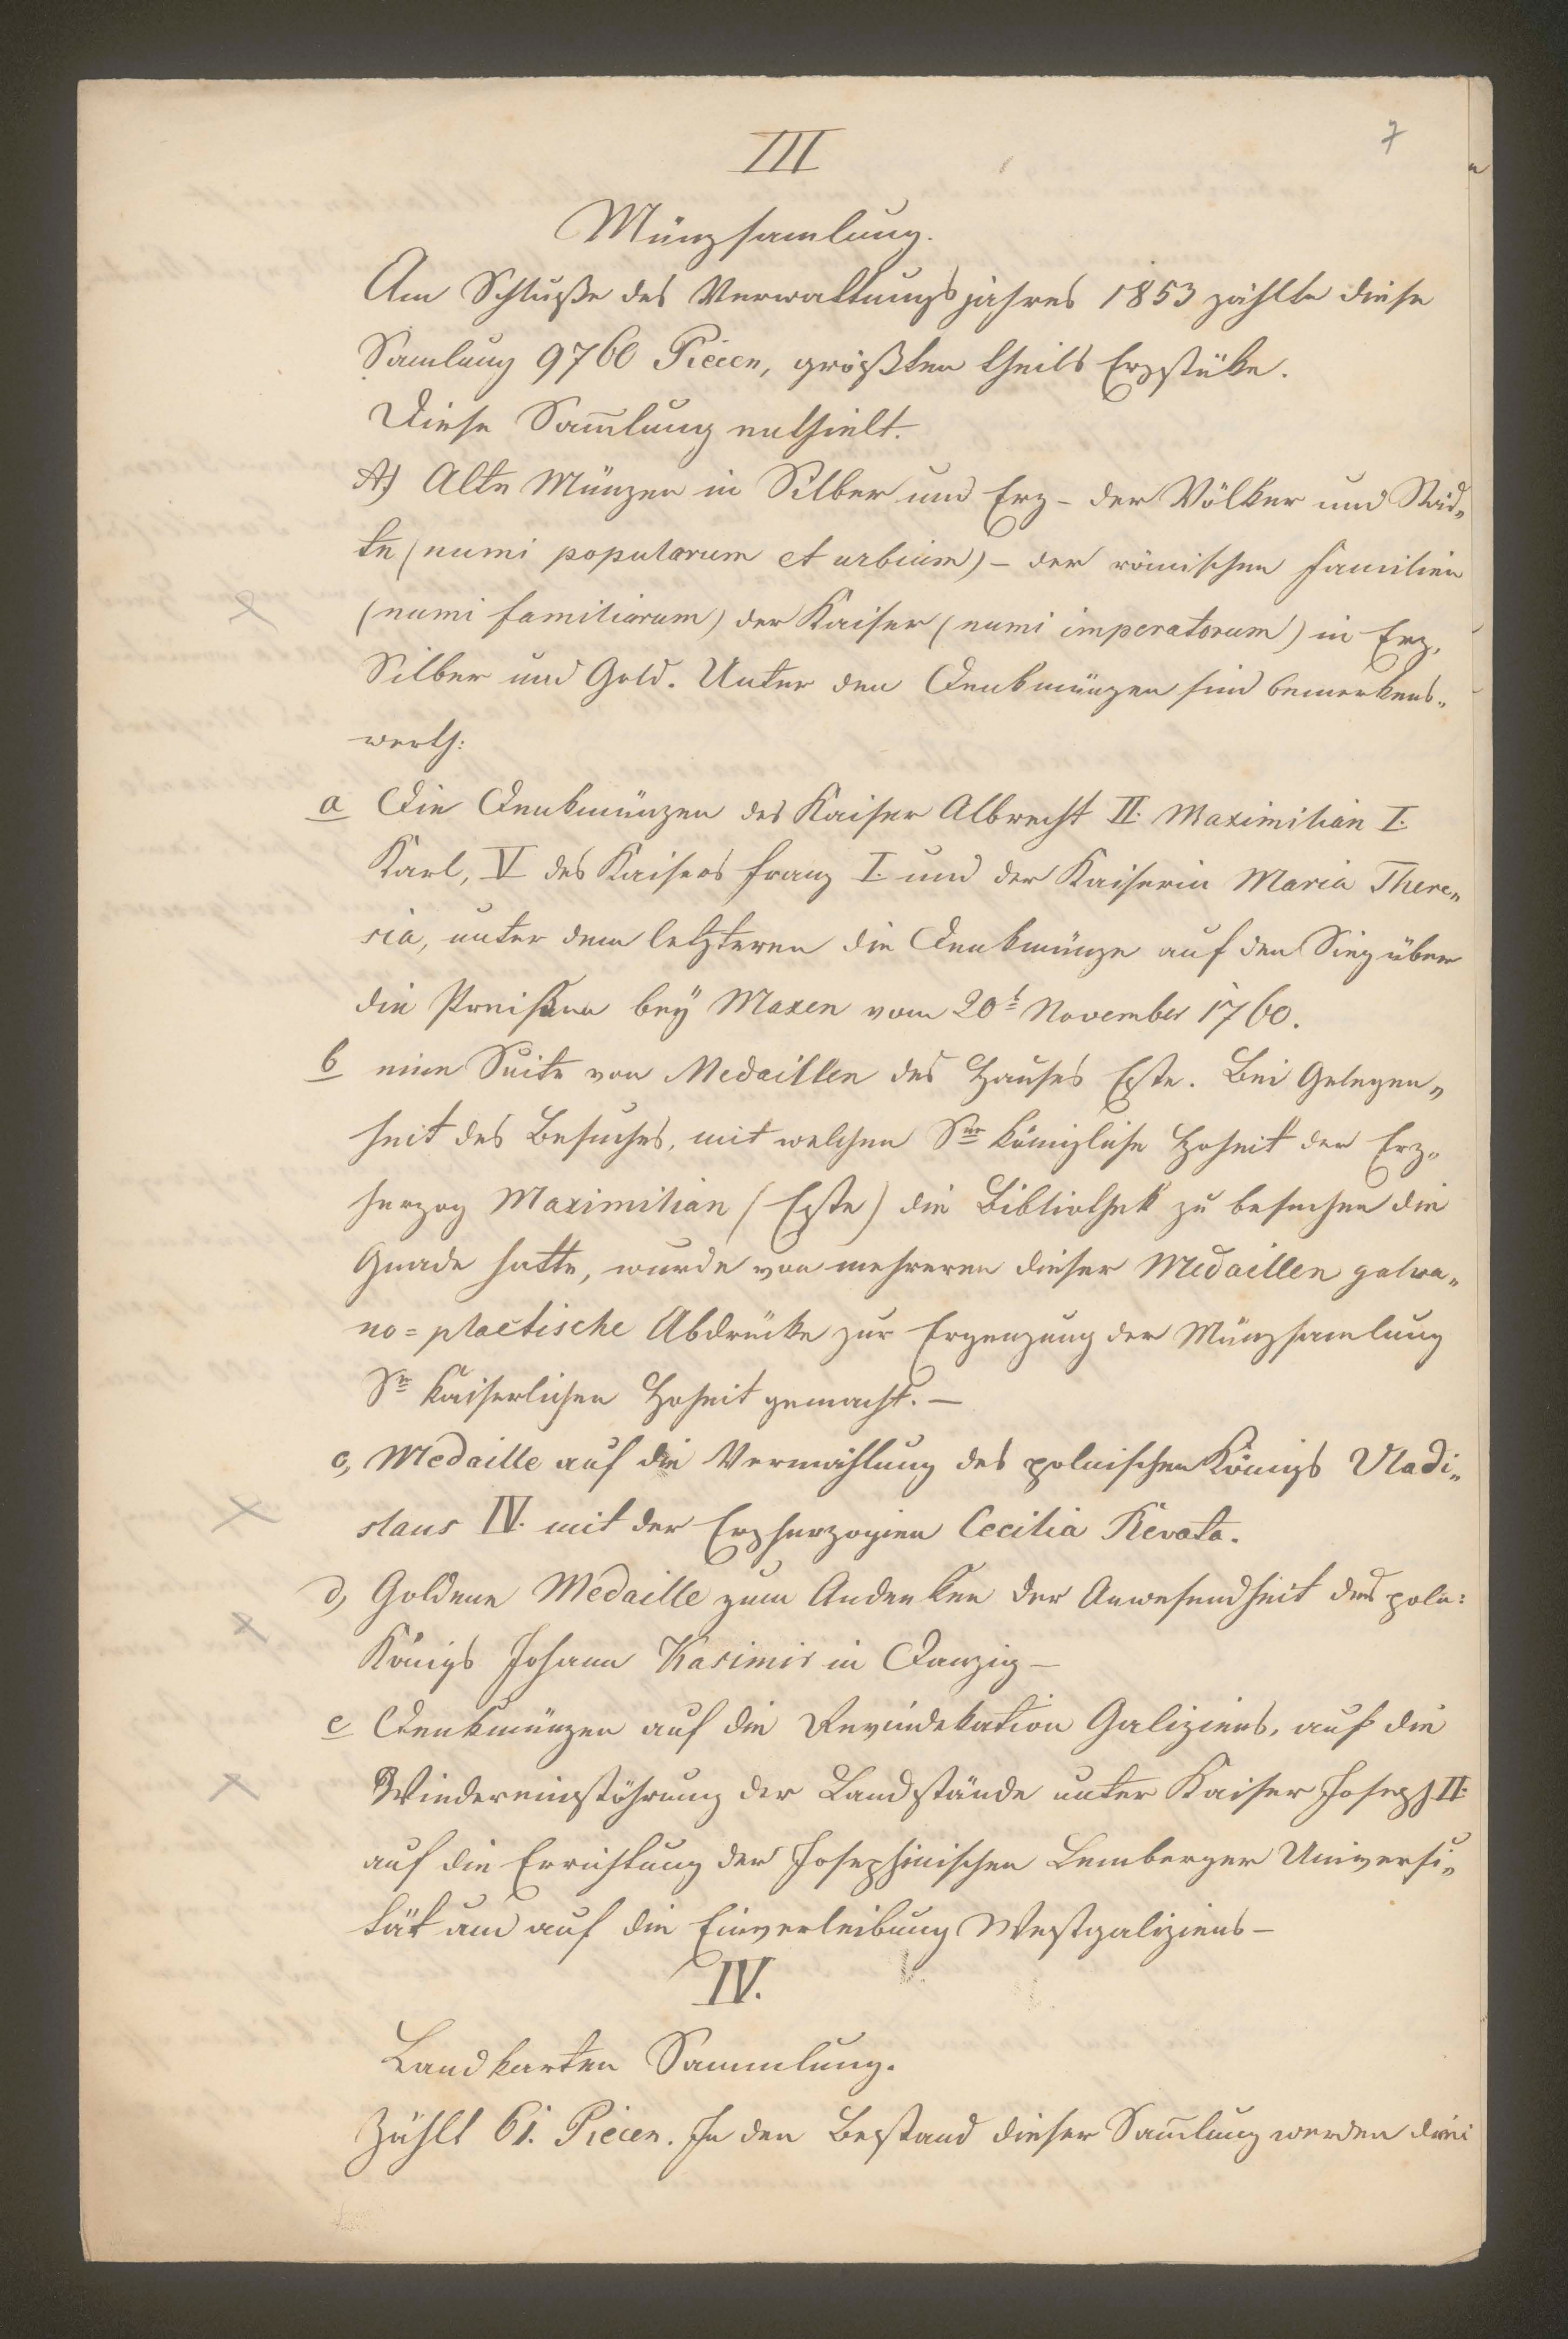 III
7
Münzsamlung.
Am Schluße des Verwaltungsjahres 1853 zählte diese
Samlung 9760 Piecen, größten theils Erzstüke.
Diese Sam̅lung enthielt.
A) Alte Münzen in Silber und Erz - der Völker und Städ„
te (numi popularum et urbium) - der römischen Familien
(numi familiarum) der Kaiser (numi imperatorum) in Erz,
Silber und Gold. Unter den Denkmünzen sind bemerkens„
werth:
a Die Denkmünzen des Kaiser Albrecht II. Maximilian I.
Karl, V des Kaisers Franz I. und der Kaiserin Maria There„
sia, unter dem letzteren die Denkmünze auf den Sieg über
die Preißen bey Maxen vom 20t November 1760.
b eine Suite von Medaillen des Hauses Este. Bei Gelegen„
heit des Besuches, mit welchen Sr königliche Hoheit der Erz„
herzog Maximilian (Este) die Bibliothek zu besuchen die
Gnade hatte, wurde von mehreren dieser Medaillen galva„
no=plactische Abdrücke zur Ergenzung der Münzsamlung
Sr kaiserlichen Hoheit gemacht. —
c, Medaille auf die Vermählung des polnischen Königs Vladi„
slaus IV. mit der Erzherzogien Cecilia Renata.
d, Goldene Medaille zum Andenken der Anwesendheit des poln:
Königs Johann Kasimir in Danzig —
e Denkmünzen auf die Revindekation Galiziens, auf die
Wiedereinstöhrung der Landstände unter Kaiser Joseph II.
auf die Errichtung der Josephinischen Lemberger Universi„
tät und auf die Einverleibung Westgaliziens —
IV.
Landkarten Sammlung.
Zählt 61. Piecen. In den Bestand dieser Sam̅lung werden drei